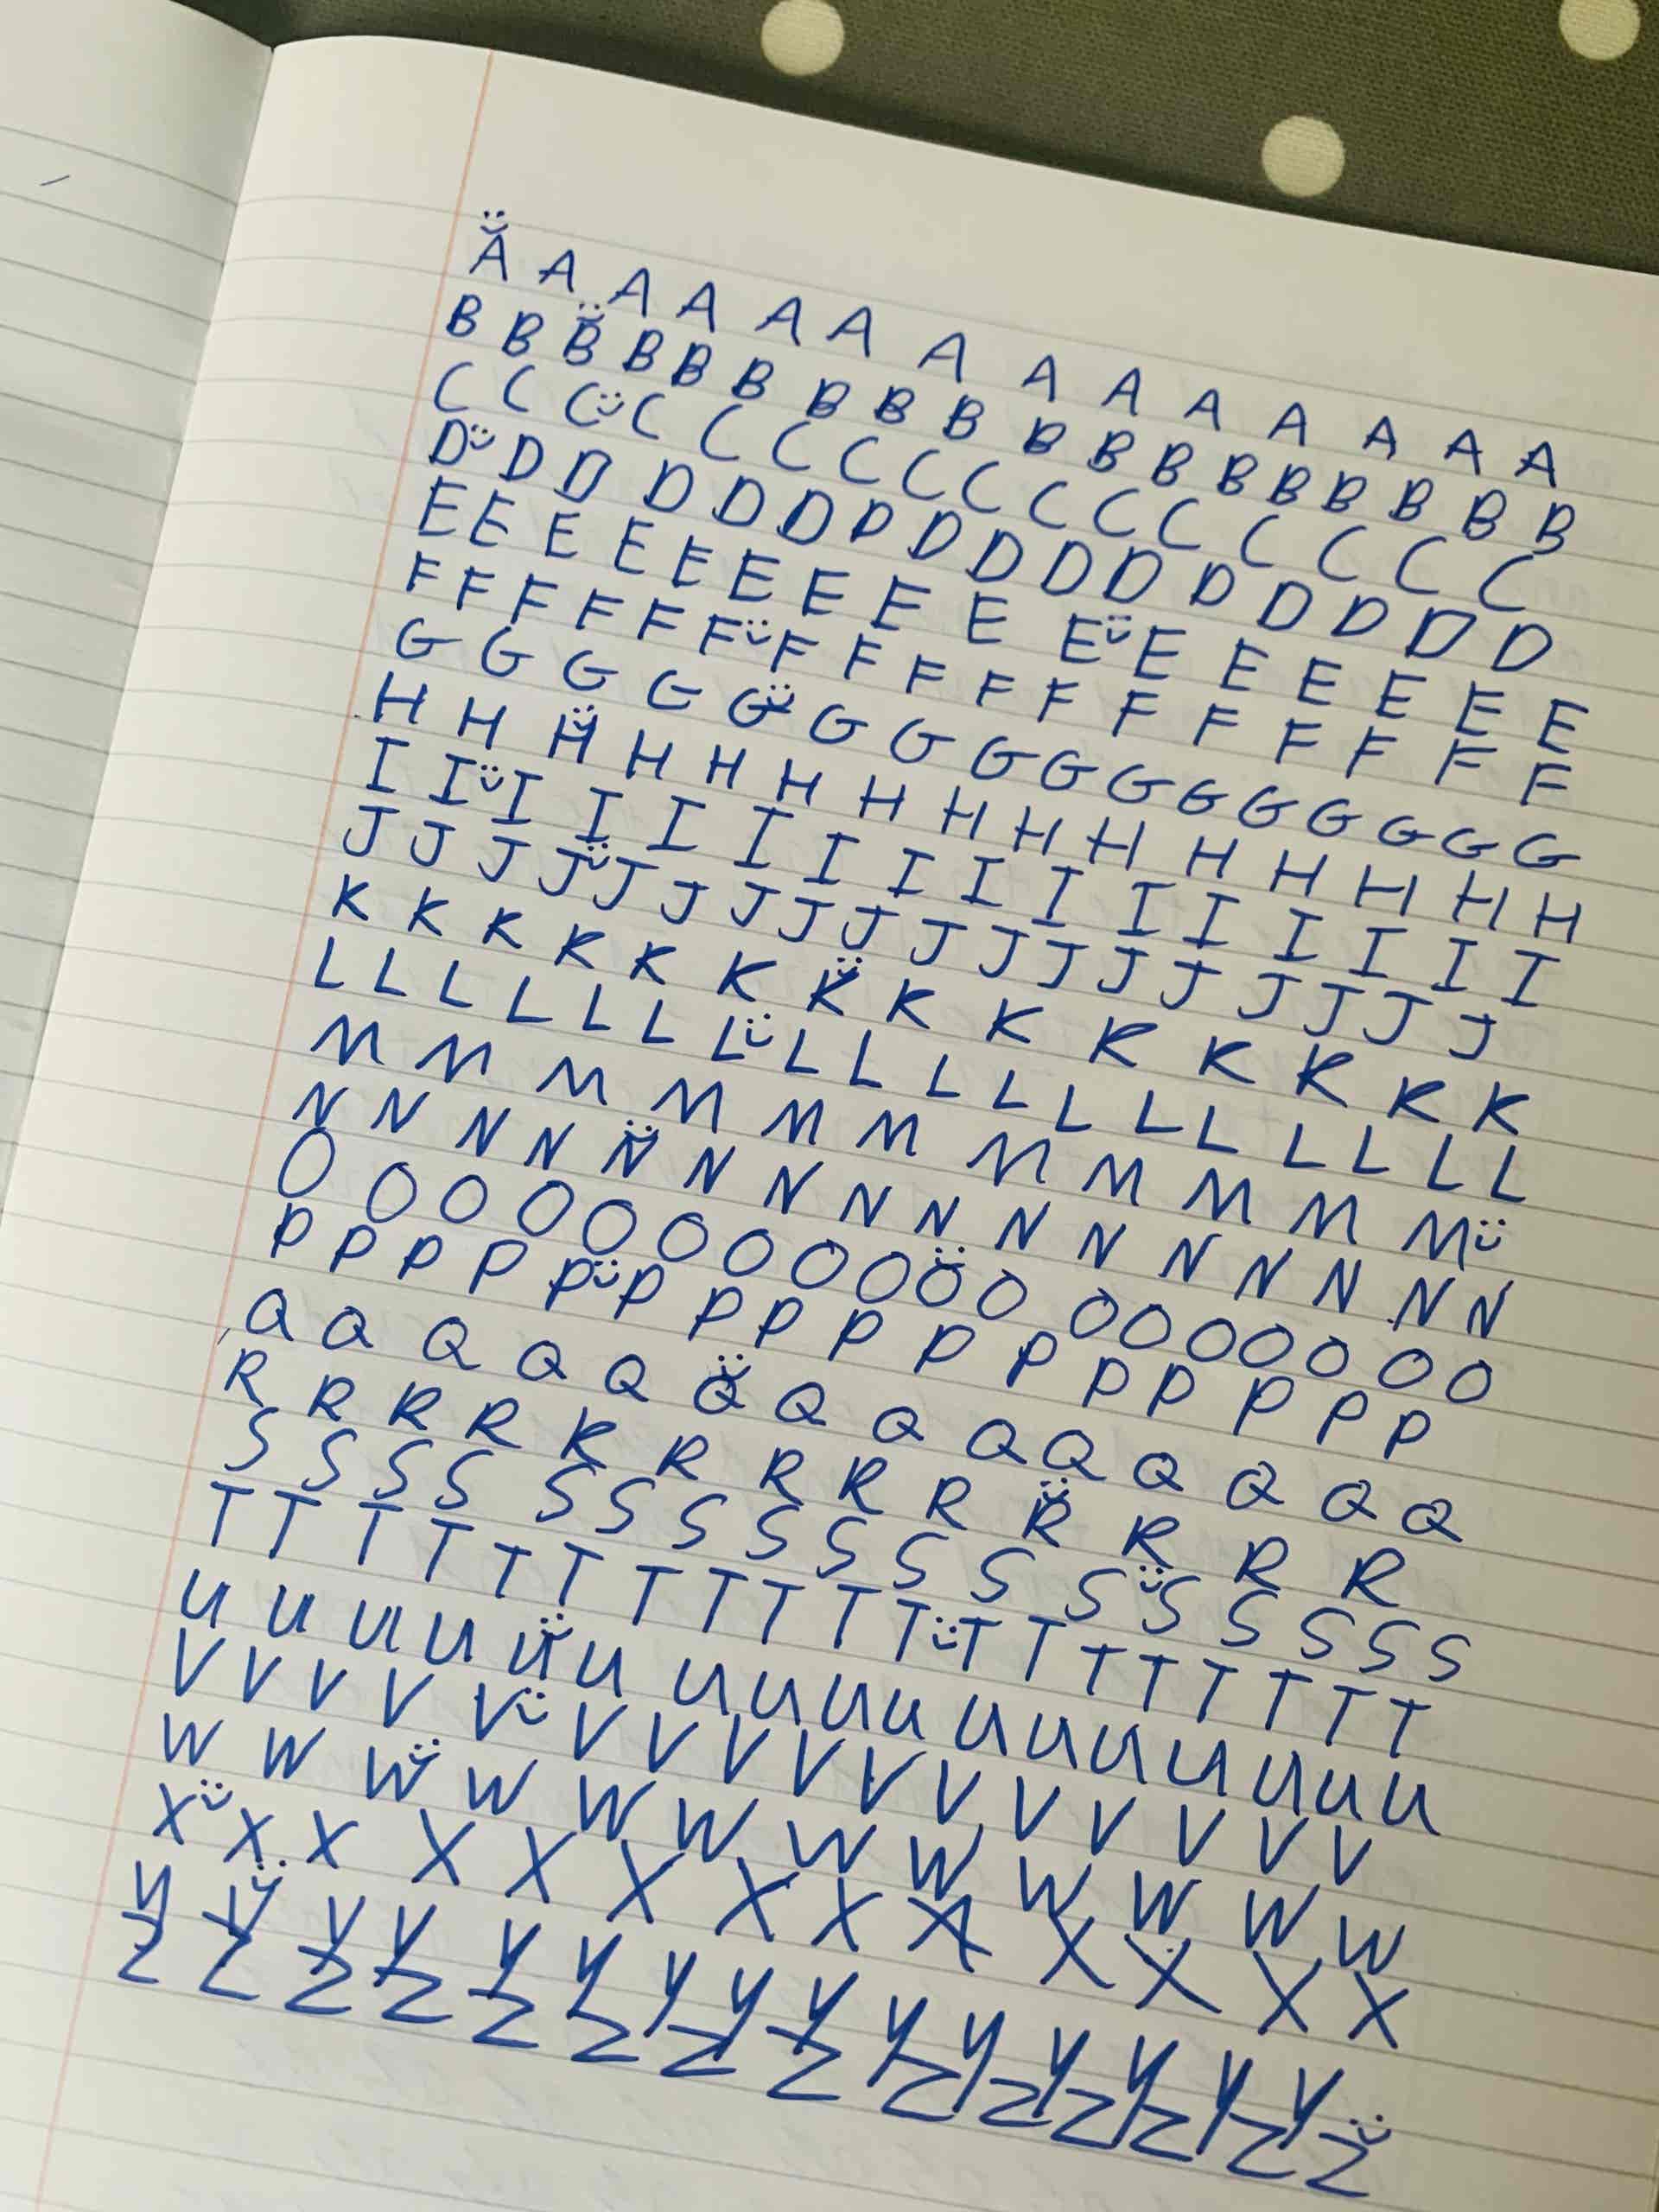 A A A A A A A A A A A A A A
B B B B B B B B B B B B B B B B B B
C C C C C C C C C C C C C C C C
D D D D D D D D D D D D D D D D
E E E E E E E E E E E E E E E E
F F F F F F F F F F F F F F F F F
G G G G G G G G G G G G G G G G
H H H H H H H H H H H H H H H
I I I I I I I I I I I I I I I I
J J J J J J J J J J J J J J J J J J
K K K K K K K K K K K K K K
L L L L L L L L L L L L L L L L L L
M M M M M M M M M M M
N N N N N N N N N N N N N N N N
O O O O O O O O O O O O O O O O O O
P P P P P P P P P P P P P P P P
Q Q Q Q Q Q Q Q Q Q Q Q Q Q
R R R R R R R R R R R R R
S S S S S S S S S S S S S S S S S
T T T T T T T T T T T T T T T T T T T
U U U U U U U U U U U U U U U U U
V V V V V V V V V V V V V V V V
W W W W W W W W W W W W
X X X X X X X X X X X X X
Y Y Y Y Y Y Y Y Y Y Y Y Y Y Y
Z Z Z Z Z Z Z Z Z Z Z Z Z Z